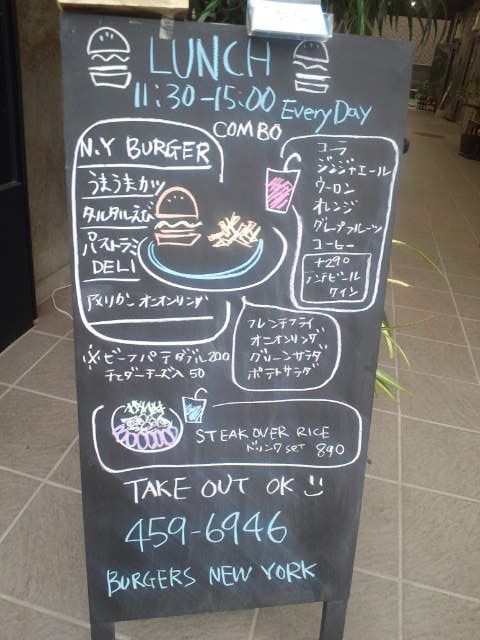 LUNCH
11:30-15:00 Every Day
COMBO
N.Y BURGER
うまうまカツ
タルタルえび
パストラミ
DELI
アメリカン オニオンリング
コーラ
ジンジャエール
ウーロン
オレンジ
グレープフルーツ
コーヒー
+290
ビール
ワイン
フレンチフライ
オニオンリング
グリーンサラダ
ポテトサラダ
※ビーフパテダブル200
チェダーチーズ入 50
STEAK OVER RICE
ドリンクset 890
TAKE OUT OK
459-6946
BURGERS NEW YORK